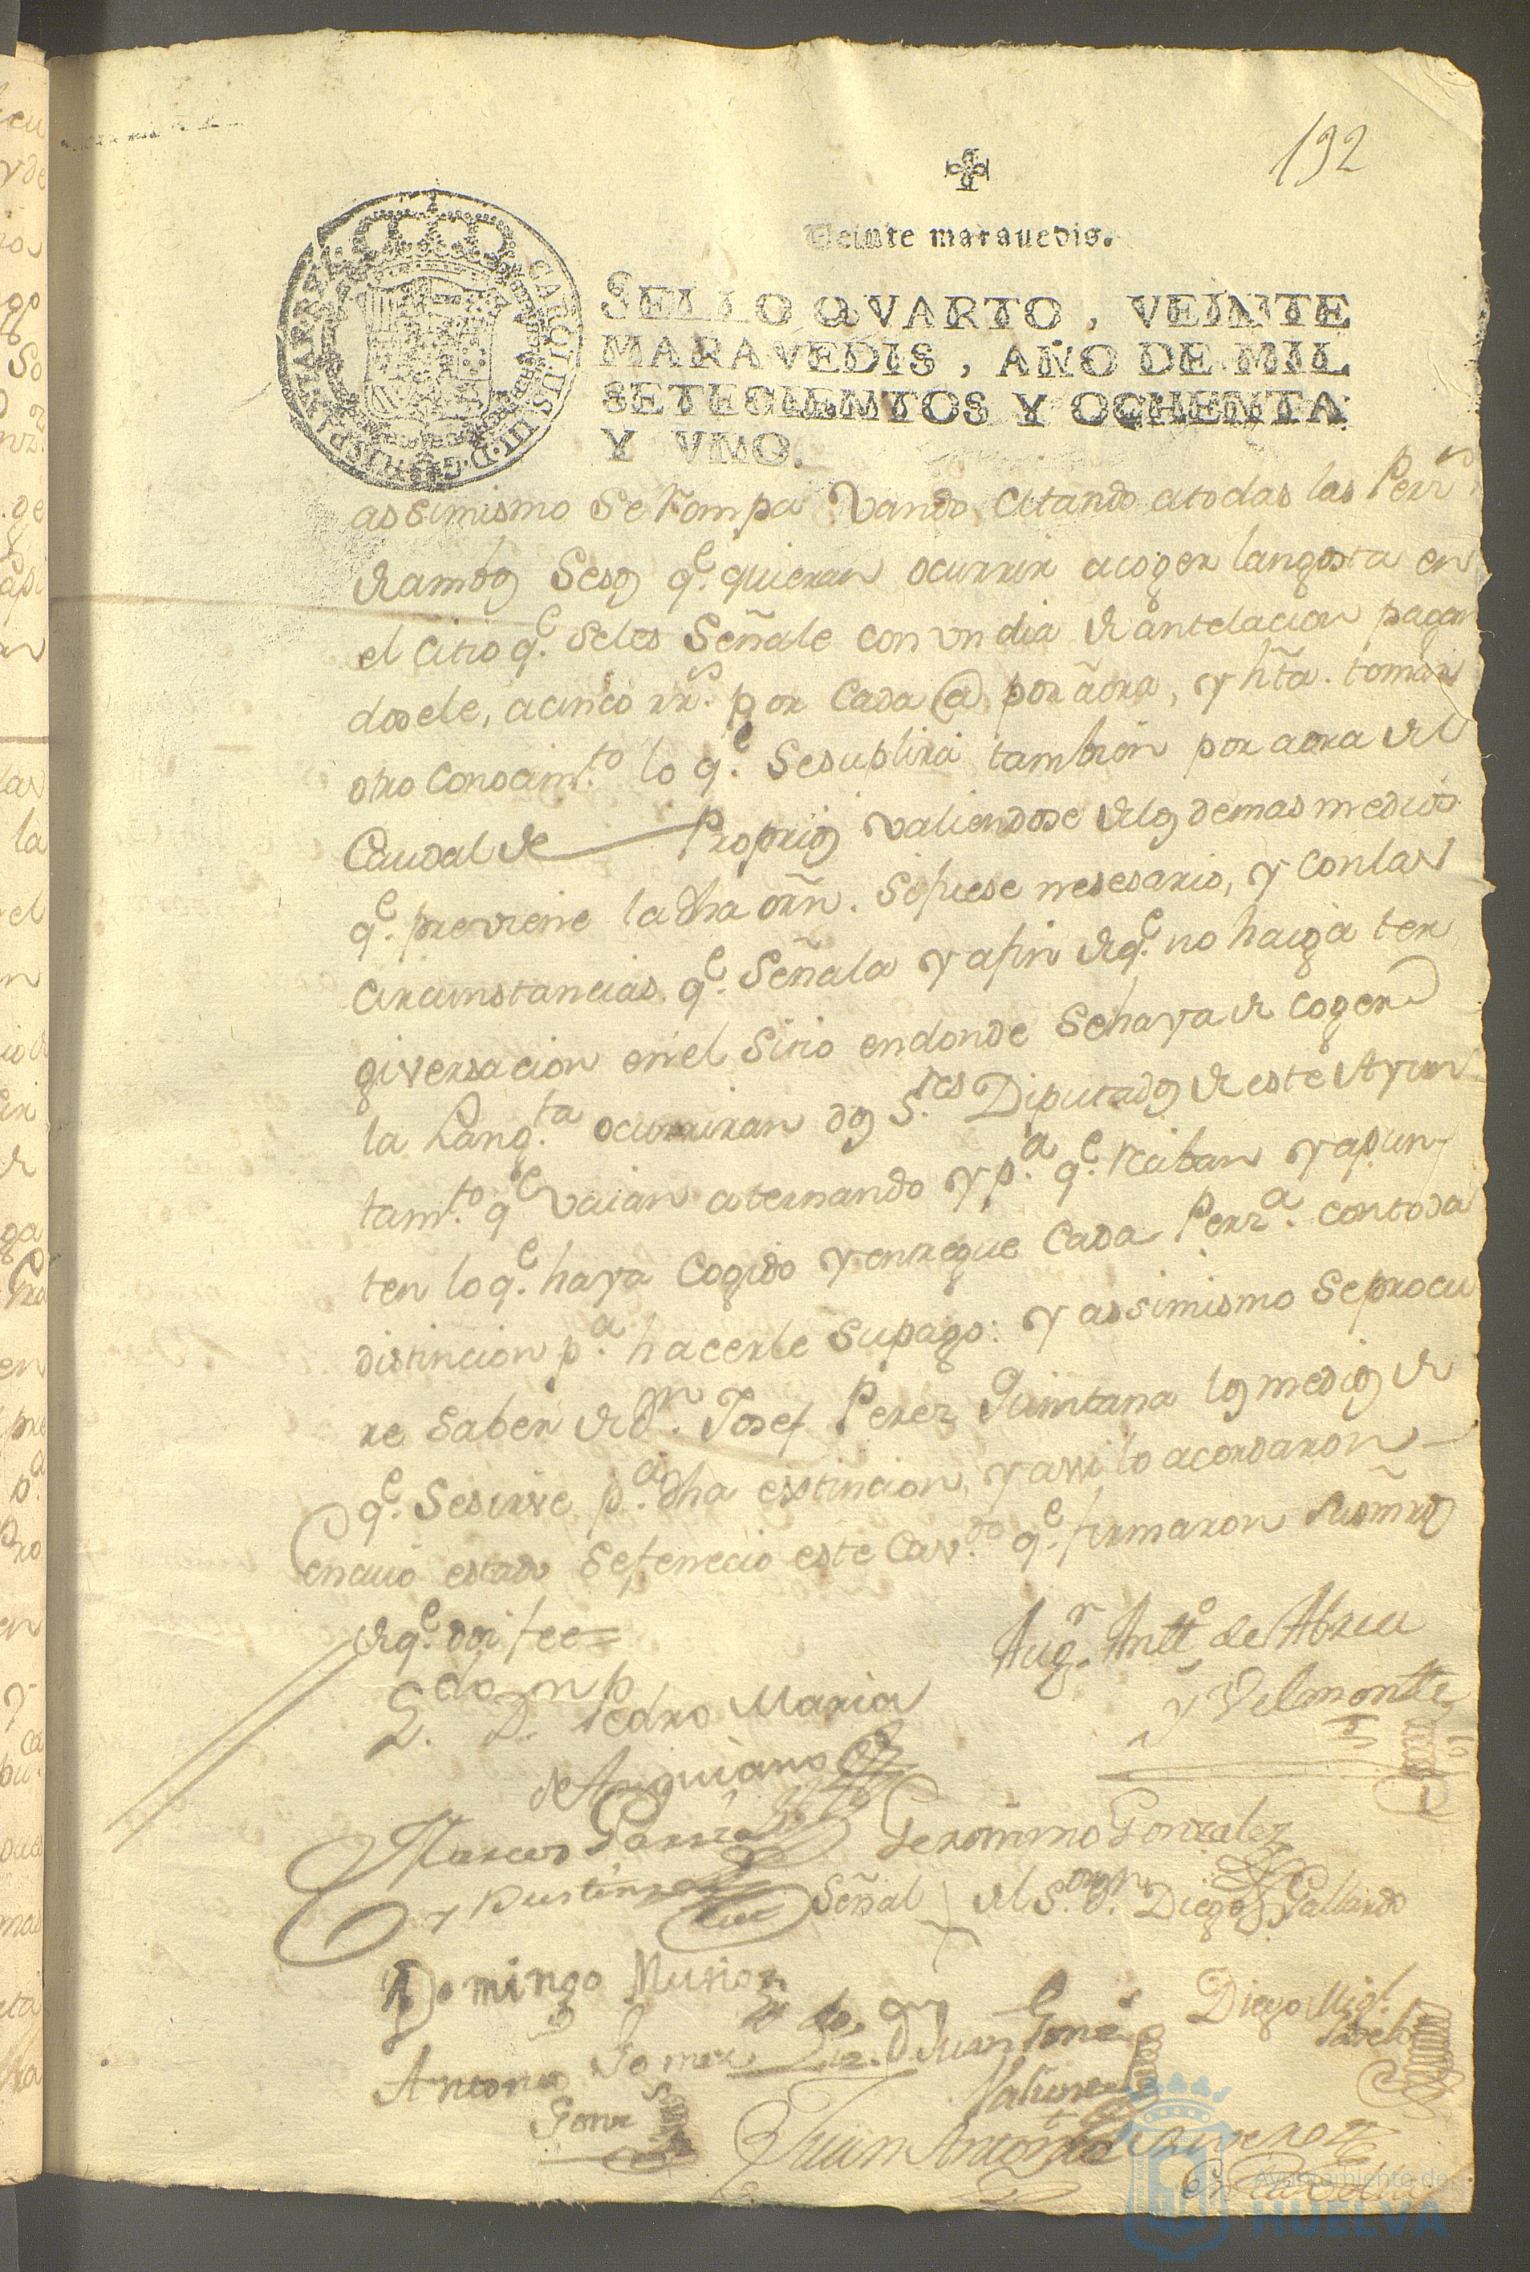 192
Veinte marauedis.
SELLO QVARTO, VEINTE
MARAVEDIS, AÑO DE MIL
SETECIENTOS Y OCHENTA
Y VNO.
CAROLUS III D G HISPANIAR REX
assimismo se rompa vando citando atodas las Perss
de ambos sesos qe. quieran ocurrir acoger langosta en
el citio qe. seles señale con vn dia de antelacion pagan
dosele, acinco rrs. por cada @ por aora, y hta. tomar
otro conosimto. lo qe. sesuplirá tambien por aora del
Caudal de Proprios valiendose delos demas medios
qe. previene la dha orn. sifuese nesesario, y conlas
circunstancias qe. señala y afin deqe. no haiga ter
giversacion enel sitio endonde sehaya de coger
la Langta. ocurriran dos Sres Diputados de este Ayun
tamto. qe vaian alternando y pa. qe. reciban y apun
ten lo qe. haya cogido y entregue cada Perza. contoda
distincion pa. hacerle supago: y assimismo seprocu
re saber de Dn. Josef Perez Quintana los medios de
qe. sesirve pa. dha esstincion, y assi lo acordaron
encuio estado sefenecio este Cavdo. qe. firmaron susmrds
deqe. doi fee=
Augn. Antto. de Abreu
y Velmonte
Ldo. Dn. Pedro Maria
de Anguiano
Marcos Garzia
y Bustinza
Geronimo Gonzalez
Señal del Sor. Dn. Diego Gallardo
Domingo Munioz
Diego Migl.
Antonio Gomez
Juan Gomes
Juan Antonio
Ayuntamiento de
HUELVA